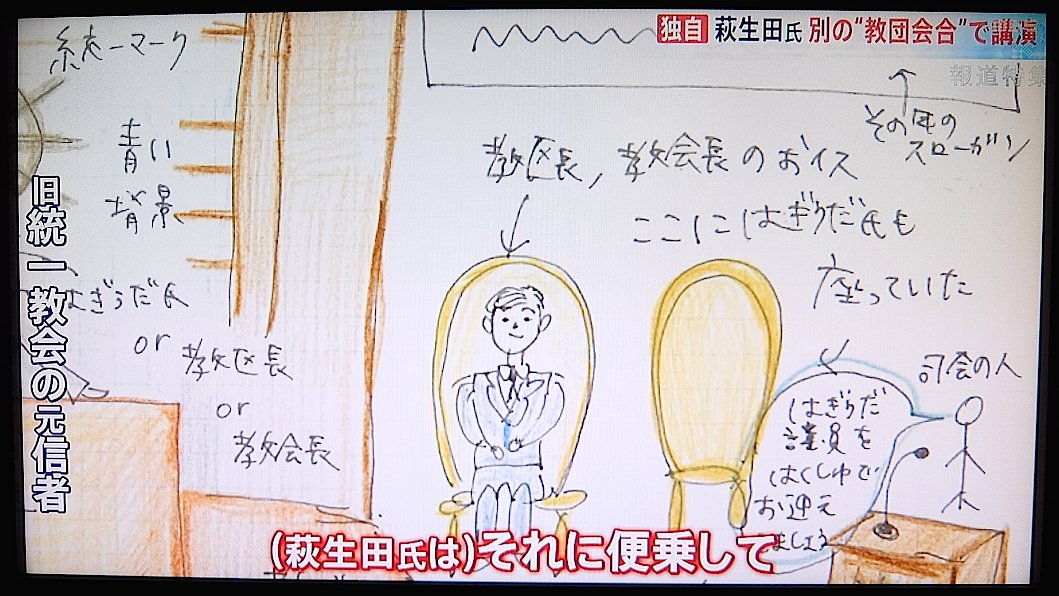 独自 萩生田氏 別の“教団会合”で講演
報道特集
統一マーク
その年の
スローガン
青い
背景
教区長,教会長のおイス
ここにはぎうだ氏も
座っていた
はぎうだ氏
or
教区長
or
教会長
司会の人
はぎうだ
議員を
はくしゅで
お迎え
ましょう
旧統一教会の元信者
(萩生田氏は)それに便乗して